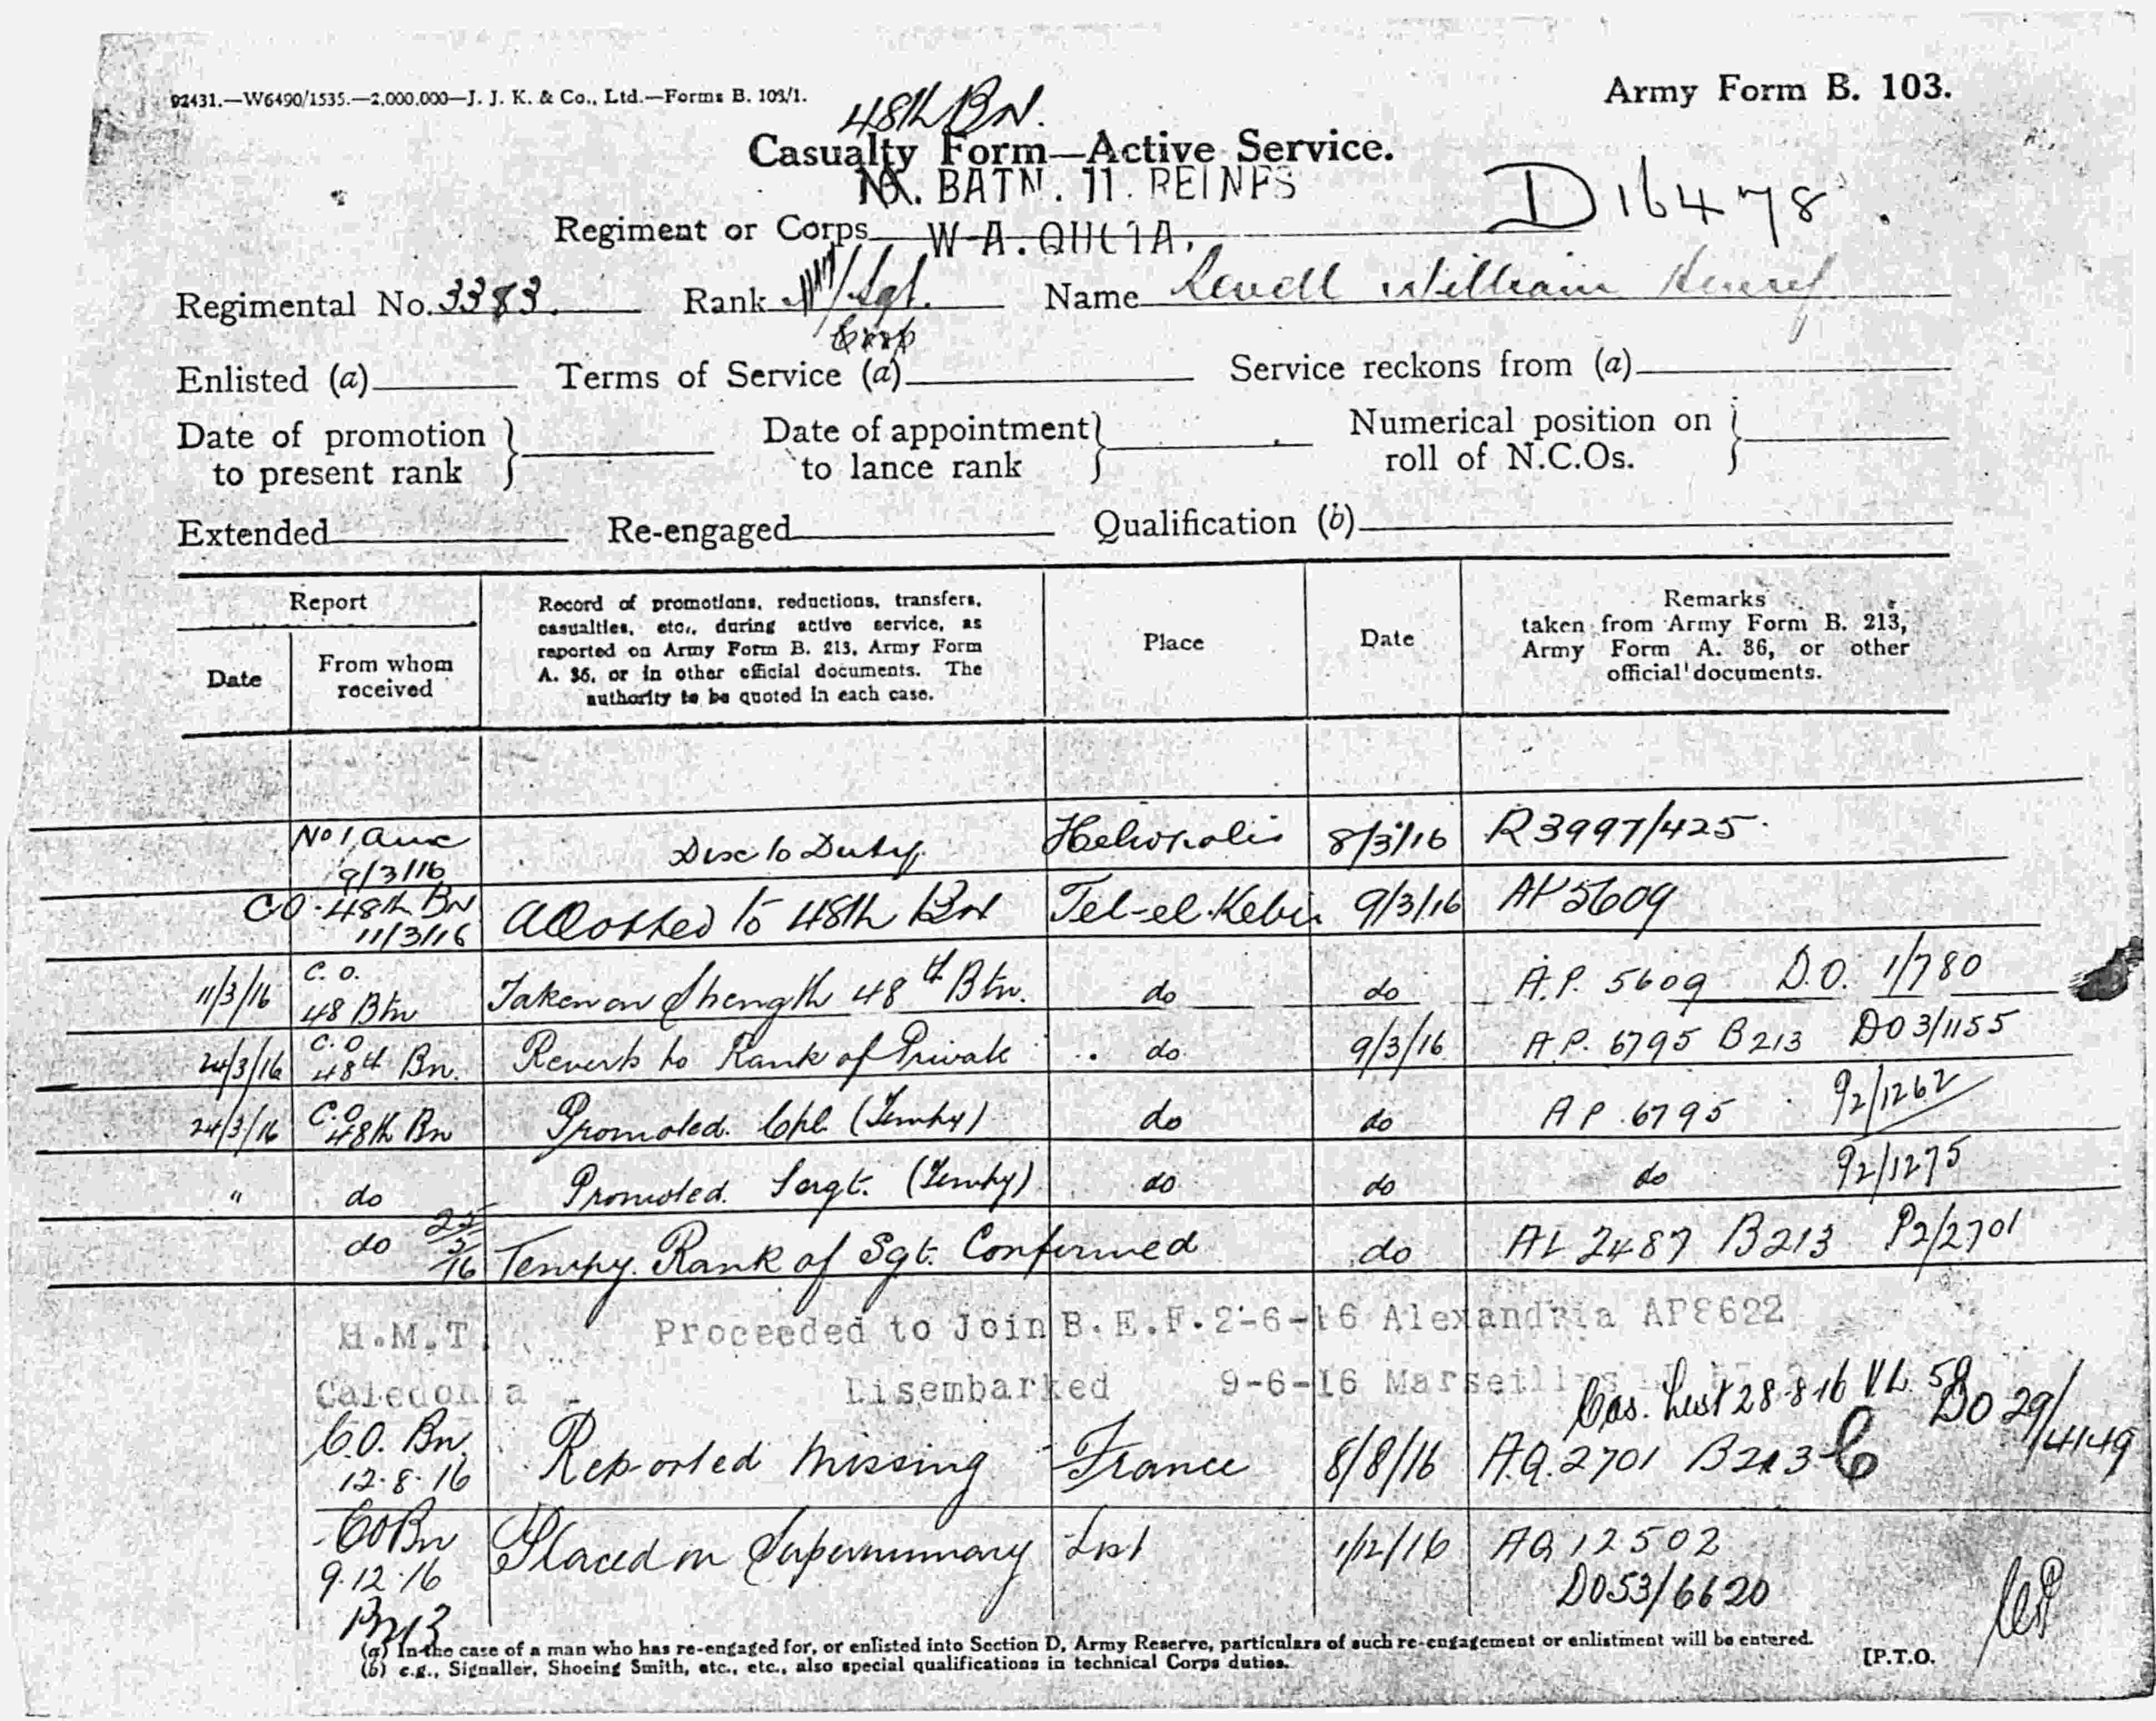 92431.—W6490/1535.—2,000,000—J. J. K. & Co., Ltd.—Forms B. 103/1.
Army Form B. 103.
48th BN.
Casualty Form—Active Service.
BATN. 11. REINFS
D16478.
Regiment or Corps W-A. 
Regimental No. 3383. Rank /Sgt. Name William Henry
Corp
Enlisted (a) Terms of Service (a) Service reckons from (a)
Date of promotion to present rank } Date of appointment to lance rank } Numerical position on roll of N.C.Os. }
Extended Re-engaged Qualification (b)
Report
Date
From whom received
Record of promotions, reductions, transfers,
casualties, etc., during active service, as
reported on Army Form B. 213, Army Form
A. 36, or in other official documents. The
authority to be quoted in each case.
Place
Date
Remarks
taken from Army Form B. 213,
Army Form A. 36, or other
official documents.
No 1 9/3/16 Disc to Duty. Heliopolis 8/3/16 R3997/425
CO. 48th BN 11/3/16 Allotted to 48th Bn Tel-el-Kebir 9/3/16 AP 5609
11/3/16 C. O. 48 Btn Taken on Strength 48th Btn. do do A.P. 5609 D.O. 1/780
24/3/16 C. O 48th Bn. Reverts to Rank of Private do 9/3/16 A.P. 6795 B213 DO 3/1155
24/3/16 C.O 48th Bn Promoted. Cpl. (Tempy) do do AP. 6795 P2/1262
" do Promoted. Sergt. (Tempy) do do do P2/1275
do 25/5/16 Tempy. Rank of Sgt. Confirmed do AL 2487 B213 P2/2701
H.M.T. Proceeded to Join B.E.F. 2-6-16 Alexandria AP8622
Caledonia - Disembarked 9-6-16 Marseilles
Cas. List 28.8.16 VL. 58 DO 29/4149
C.O. Bn. 12.8.16 Reported Missing France 8/8/16 A.Q. 2701 B213
CO Bn 9.12.16 Placed on Supernumary List 1/12/16 AQ 12502
DO53/6620
(a) In the case of a man who has re-engaged for, or enlisted into Section D, Army Reserve, particulars of such re-engagement or enlistment will be entered.
(b) e.g., Signaller, Shoeing Smith, etc., etc., also special qualifications in technical Corps duties.
[P.T.O.